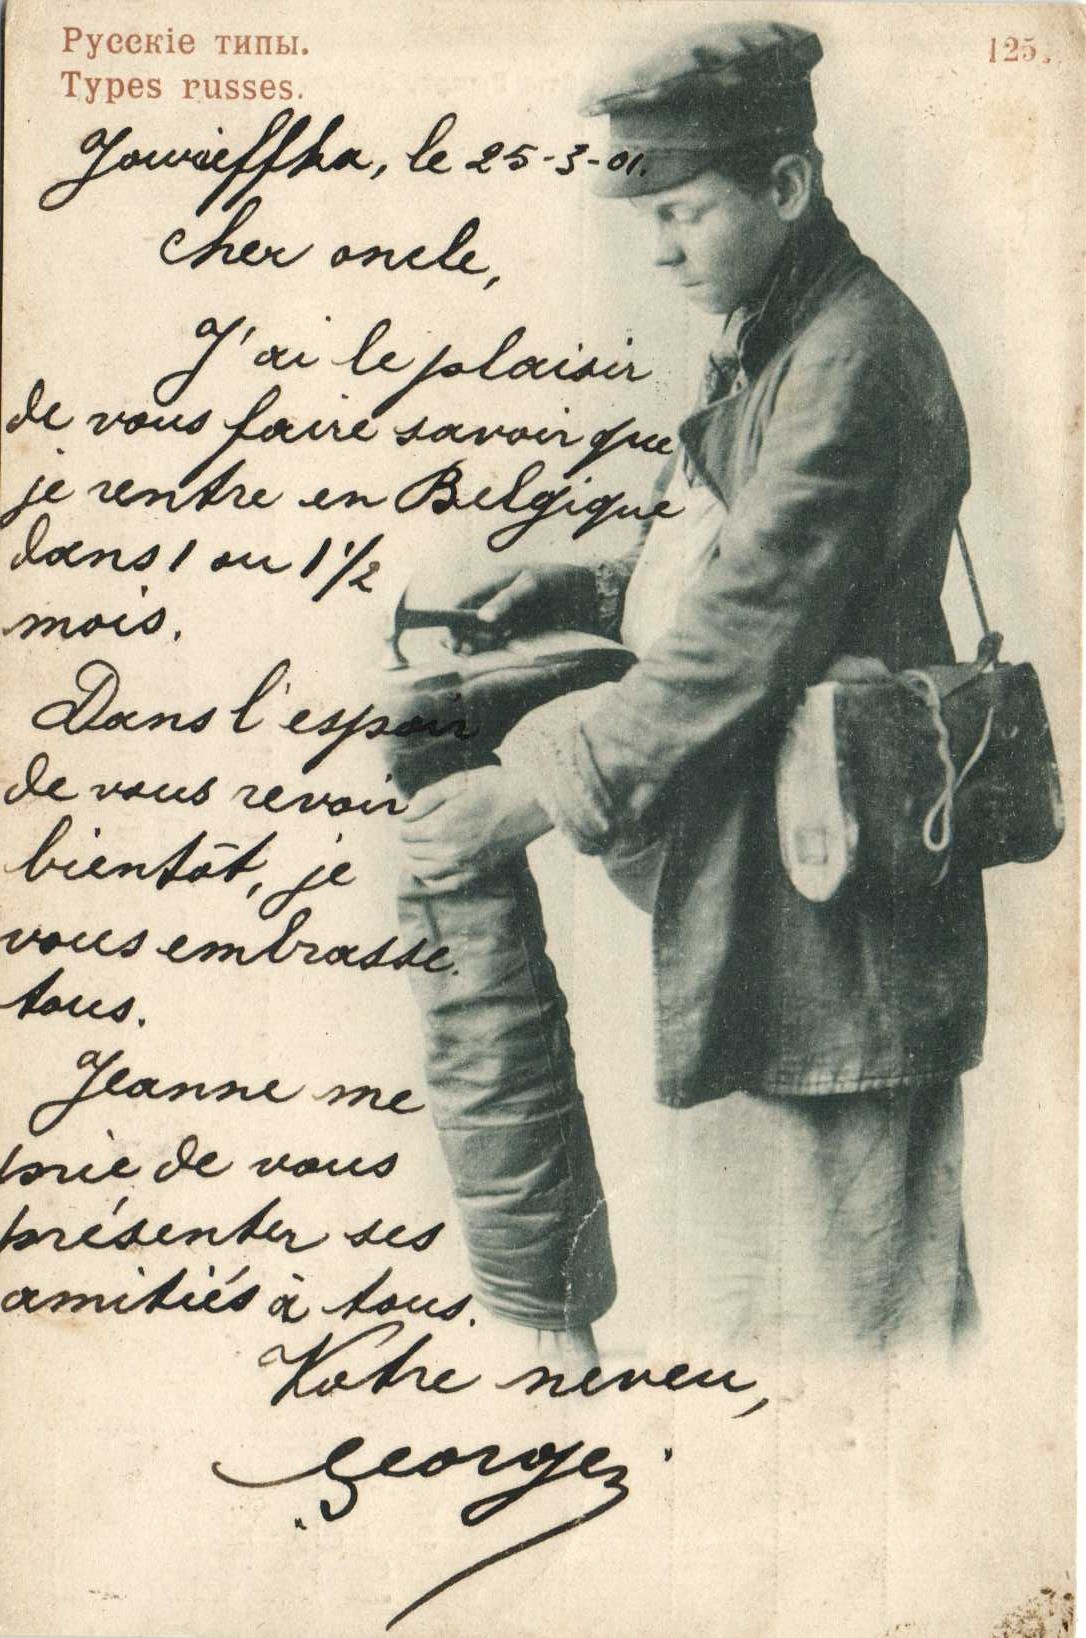 Русскіе типы.
Types russes.
125.
Jowieffka, le 25-3-01.
Cher oncle,
J'ai le plaisir
de vous faire savoir que
je rentre en Belgique
dans 1 ou 1 1/2
mois.
Dans l'espoir
de vous revoir
bientôt, je
vous embrasse
tous.
Jeanne me
prie de vous
présenter ses
amitiés à tous.
Votre neveu,
Georges